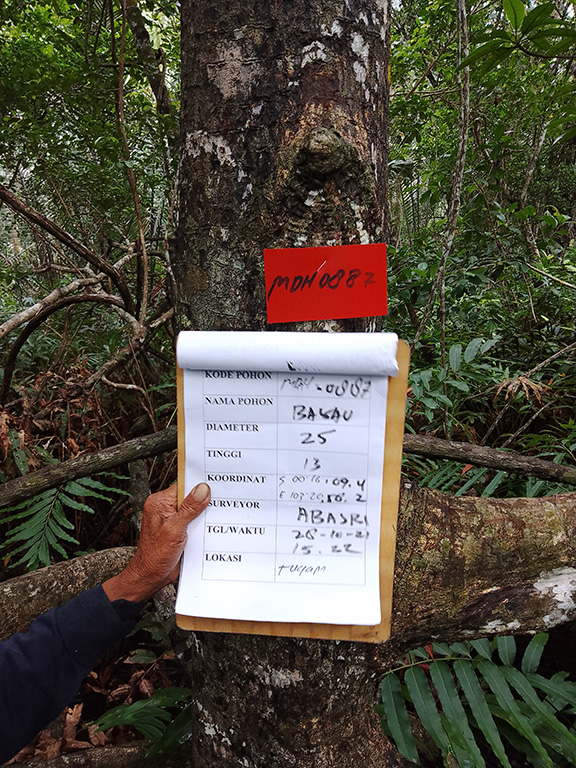 MDH 0887
KODE POHON MDH - 0887
NAMA POHON BAKAU
DIAMETER 25
TINGGI 13
KOORDINAT S 00°16' 09.4
E 103°20'
SURVEYOR ABASRI
TGL/WAKTU 28-10-21
15.22
LOKASI